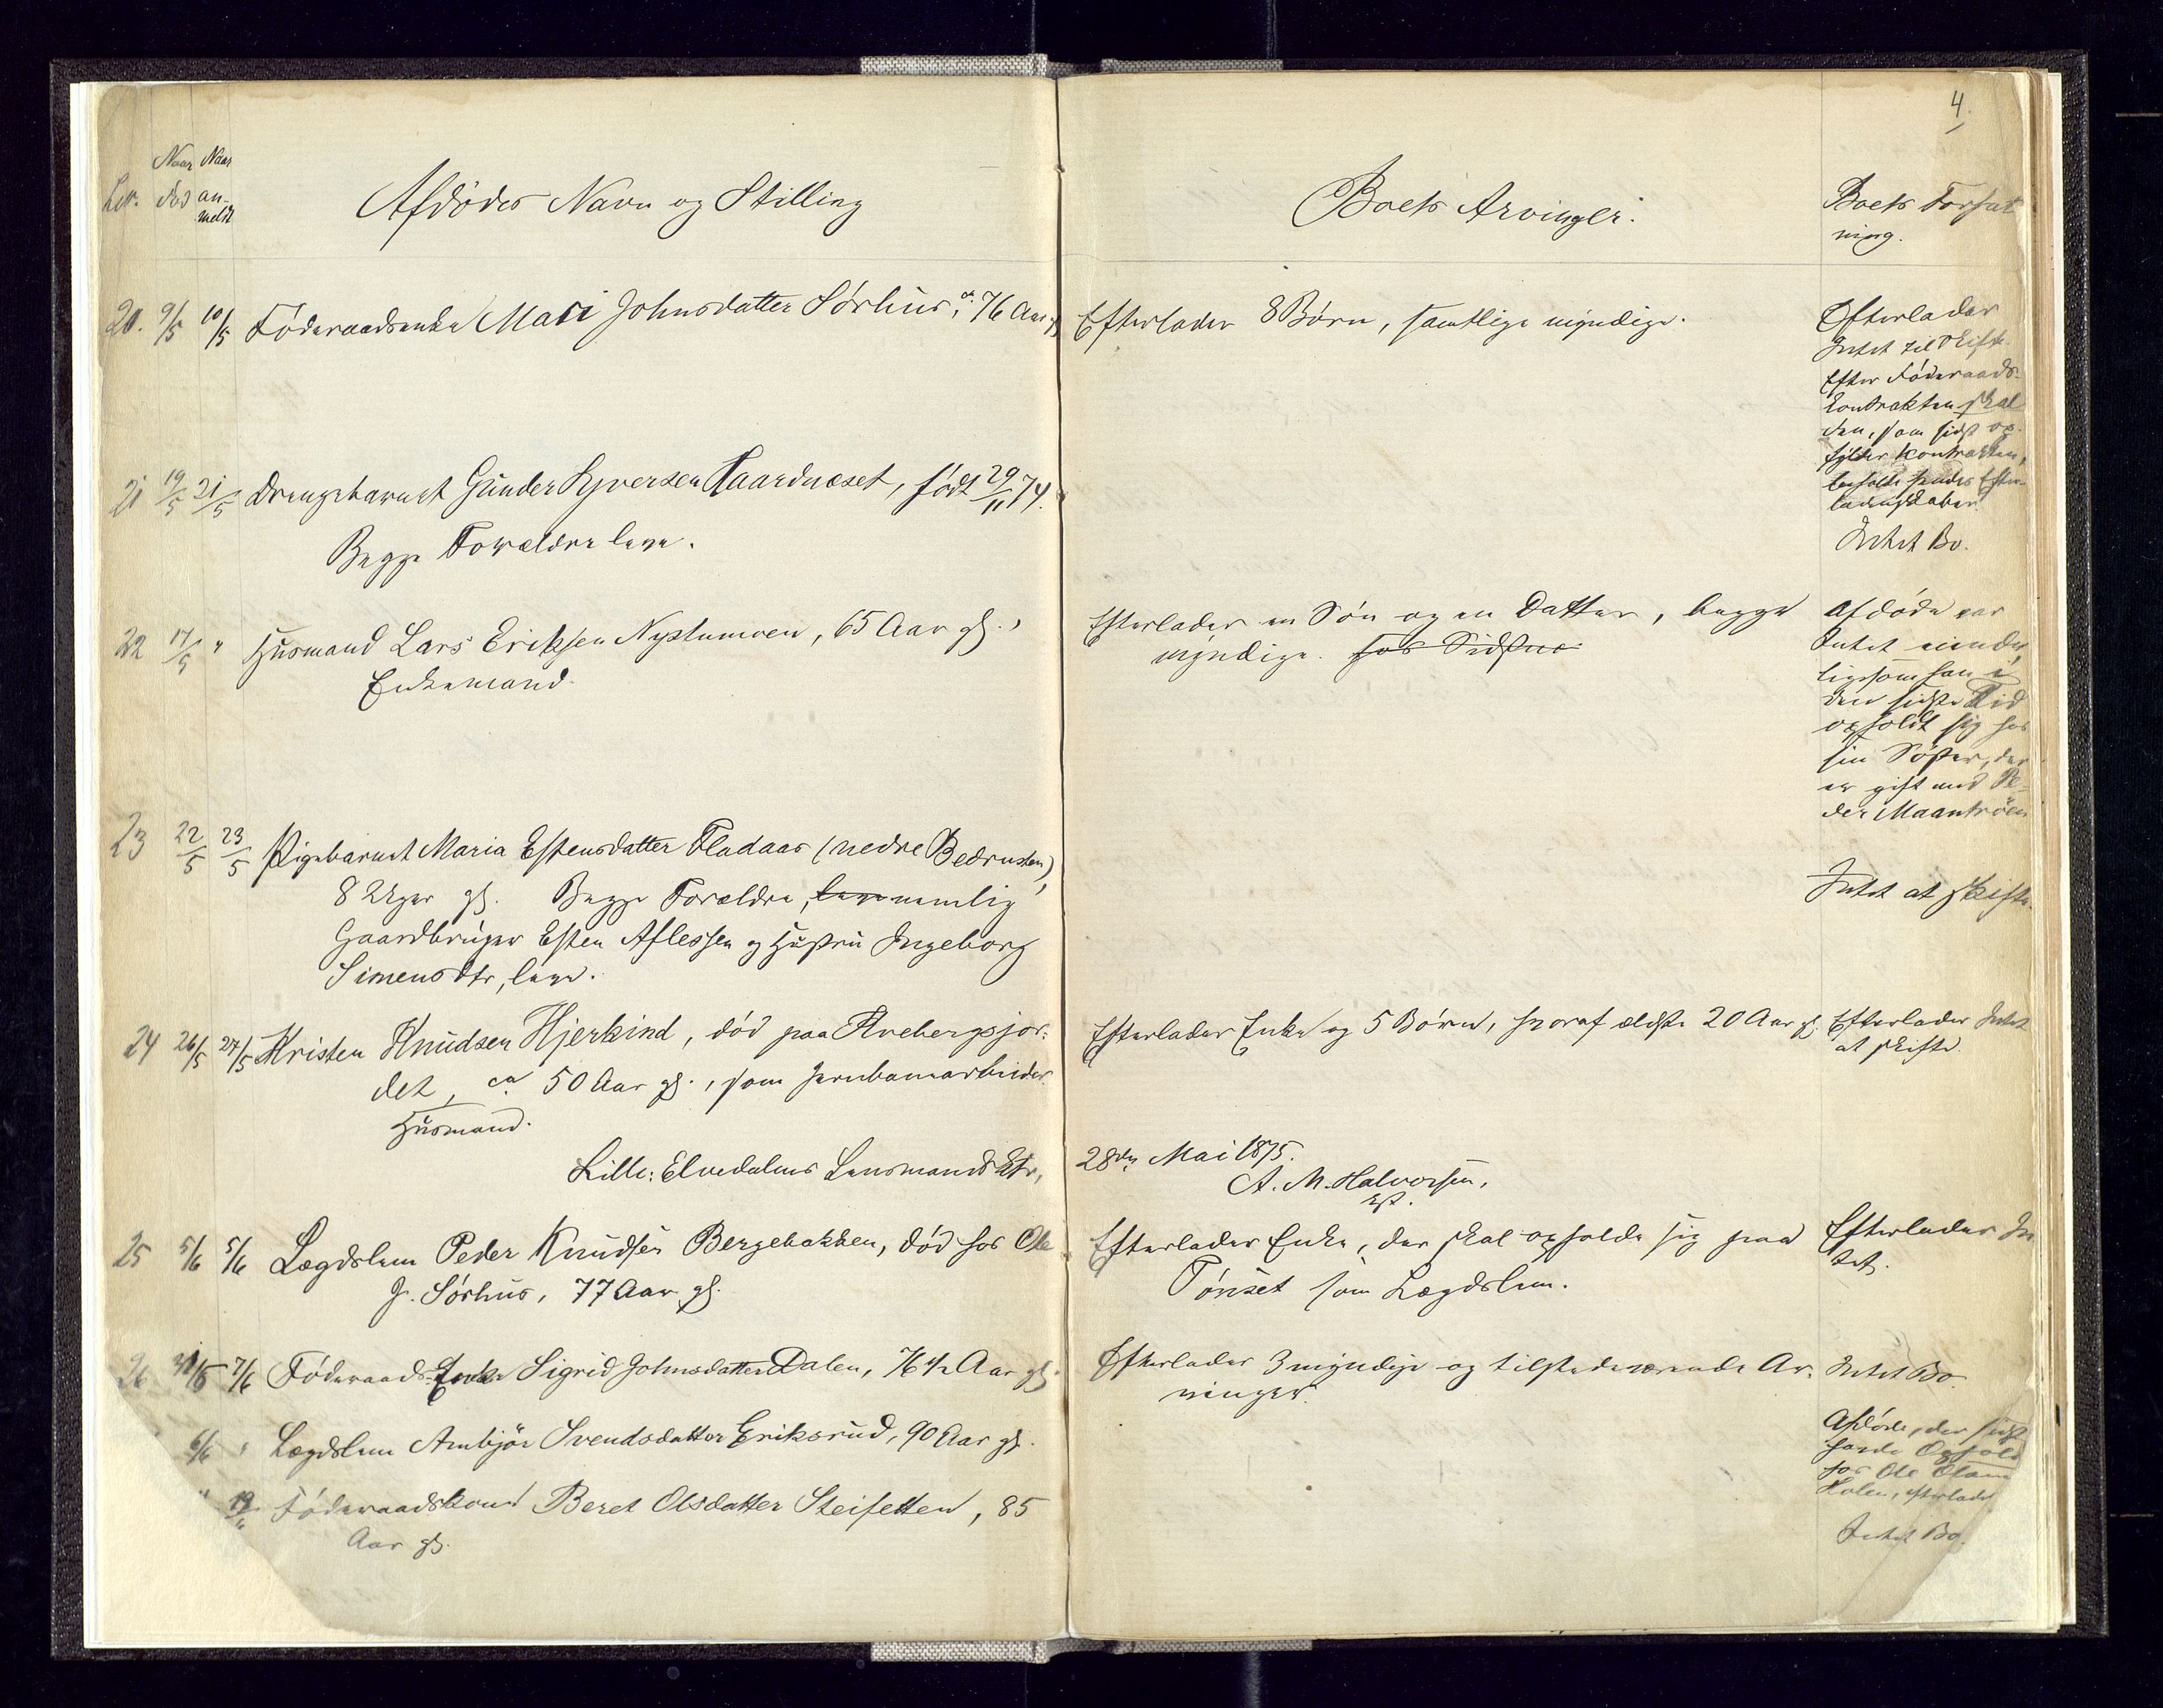 4.
Naar Naar
død an-
meldt
Afdødes Navn og Stilling
Boets Arvinger.
Boets Forfat
ning.
20. 9/5 10/5 Føderaadsenke Mari Johnsdatter Sørhus, ct. 76 Aar gl.
Efterlader 8 Børn, samtlige myndige.
Efterlader
Intet til Skifte.
Efter Føderaads-
kontrakten skal
den, som sidst op-
fylder kontrakten,
beholde hendes Efter-
ladenskaber.
21 19/5 21/5 Drengebarnet Gunder Syversen Haardnæset, født 29/11 74.
Begge Forældre leve.
Intet Bo.
22 17/5 " Husmand Lars Eriksen Nystumoen, 65 Aar gl.,
Enkemand.
Efterlader en Søn og en Datter, begge
myndige. hos Sidstne
Afdøde var
Intet eiende,
ligesom han i
den sidste Tid
opholdt sig hos
sin Søster, der
er gift med Pe-
der Maantrøen
23 22/5 23/5 Pigebarnet Maria Estensdatter Fladaas (nedre Bedrusten),
8 Uger gl. Begge Forældre, leve nemlig
Gaardbruger Esten Aflessen og Hustru Ingeborg
Simensdtr, leve.
Intet at skifte.
24 26/5 27/5 Kristen Knudsen Hjerkind, død paa Avebergsjor-
det, ca 50 Aar gl., som Jernbanearbeider.
Husmand.
Efterlader Enke og 5 Børn, hvoraf ældste 20 Aar gl.
Efterlader Intet
at skifte.
Lille-Elvedalens Lensmandsktr,
28de Mai 1875.
A. M. Halvorsen,
Kst.
25 5/6 5/6 Lægdslem Peder Knudsen Bergebakken, død hos Ole
J. Sørhus, 77 Aar gl.
Efterlader Enke, der skal opholde sig paa
Tønset som Lægdslem.
Efterlader In
tet.
26 31/5 7/6 Føderaads-Enke Sigrid Johnsdatter Dalen, 76 1/2 Aar gl.
Efterlader 3 myndige og tilstedeværende Ar-
vinger.
Intet Bo.
6/6 " Lægdslem Ambjør Svendsdatter Eriksrud, 90 Aar gl.
Afdøde, der sidst
havde Ophold
hos Ole
Holen, efterlader
Føderaadskone Beret Olsdatter Steisetten, 85
Aar gl.
Intet Bo.